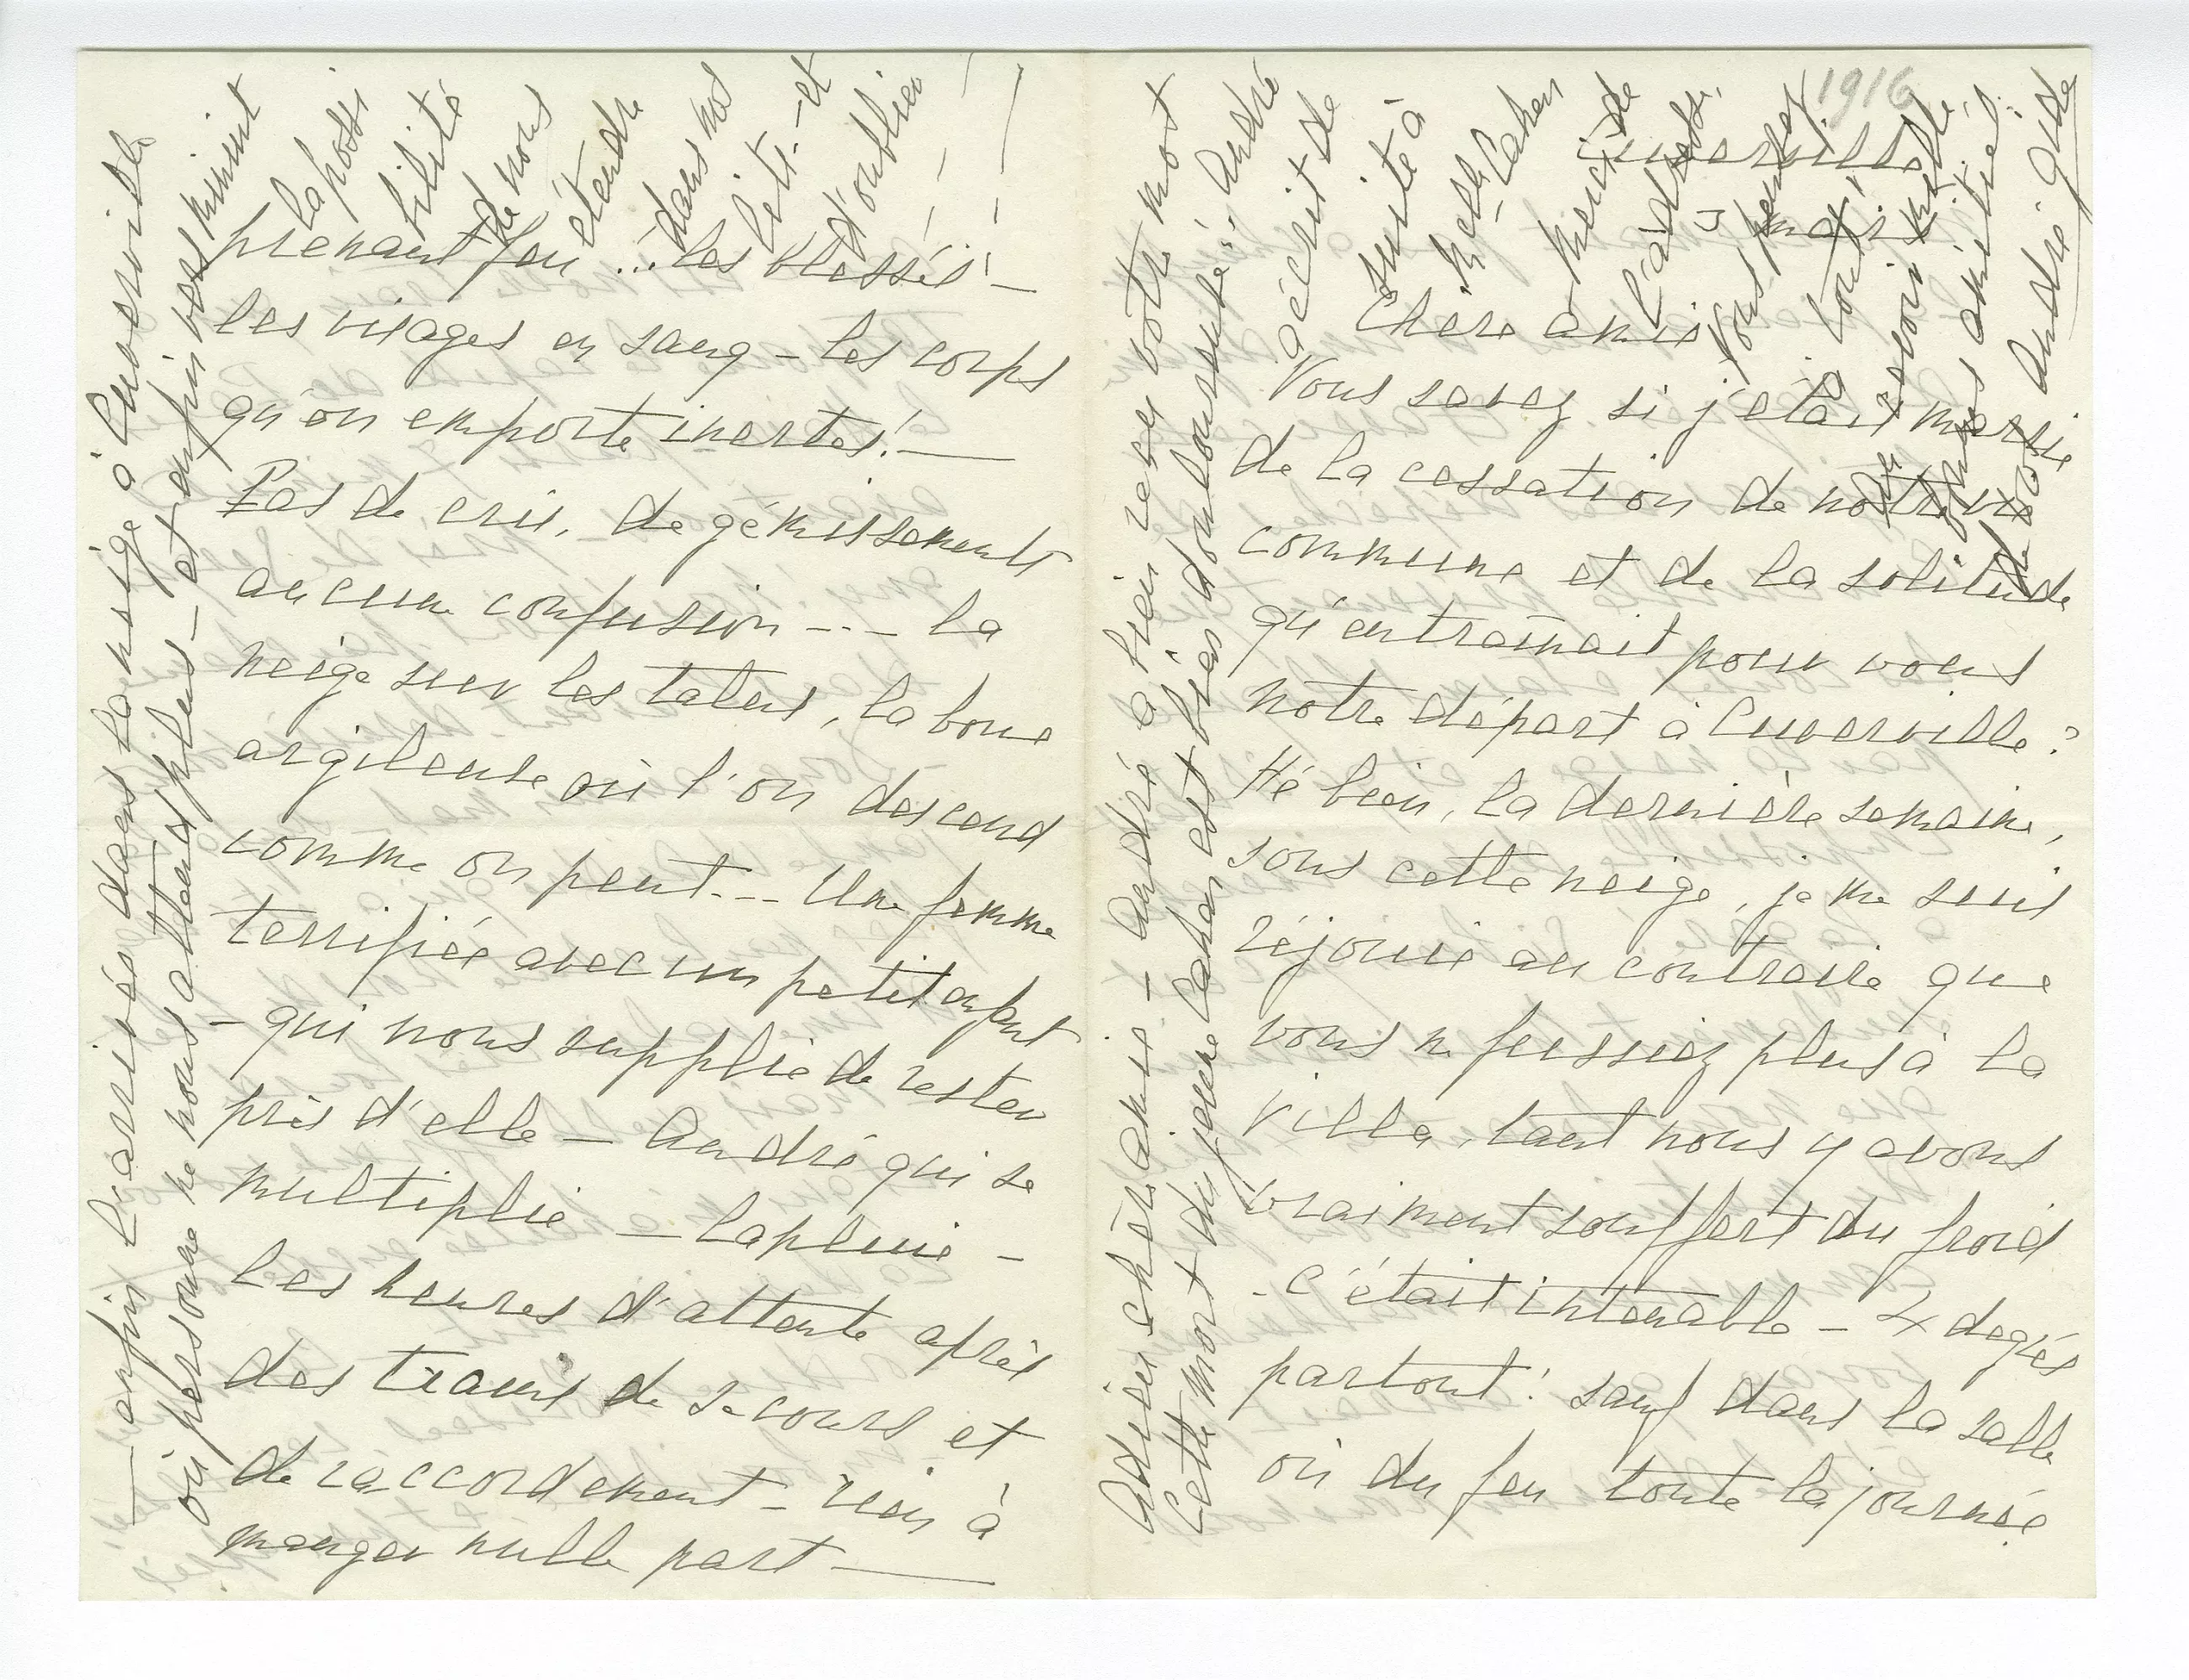 1916
Cuverville
5 mars
Chère amie
Vous savez si j'étais marrie
de la cessation de notre vie
commune et de la solitude
qu'entraînait pour vous
notre départ à Cuverville ?
Hé bien, la dernière semaine,
sous cette neige, je me suis
réjouie au contraire que
vous ne fussiez plus à la
Villa, tant nous y avons
vraiment souffert du froid
- c'était intenable - 4 degrés
partout ! sauf dans la salle
où du feu toute la journée
prenant feu ... les blessés -
les visages en sang - les corps
qu'on emporte inertes ! -
Pas de cris, de gémissements
aucune confusion --- la
neige sur les talus, la boue
argileuse où l'on descend
comme on peut --- Une femme
terrifiée avec un petit enfant
- qui nous supplie de rester
près d'elle - André qui se
multiplie - la pluie -
les heures d'attente après
des trains de secours et
de raccordement - rien à
manger nulle part -
- enfin l'arrivée dans la neige à Cuverville
où personne ne nous attend plus - et enfin vers minuit
la possi
bilité
de nous
étendre
dans nos
lits - et
d'oublier
Adieu chère amie - André a bien reçu votre mot
Cette mort du jeune Cahen est bien douloureuse. André
a écrit de
suite à
Melle Cahen
merci de
l'adresse.
Vous pensez
à tout !
André Gide